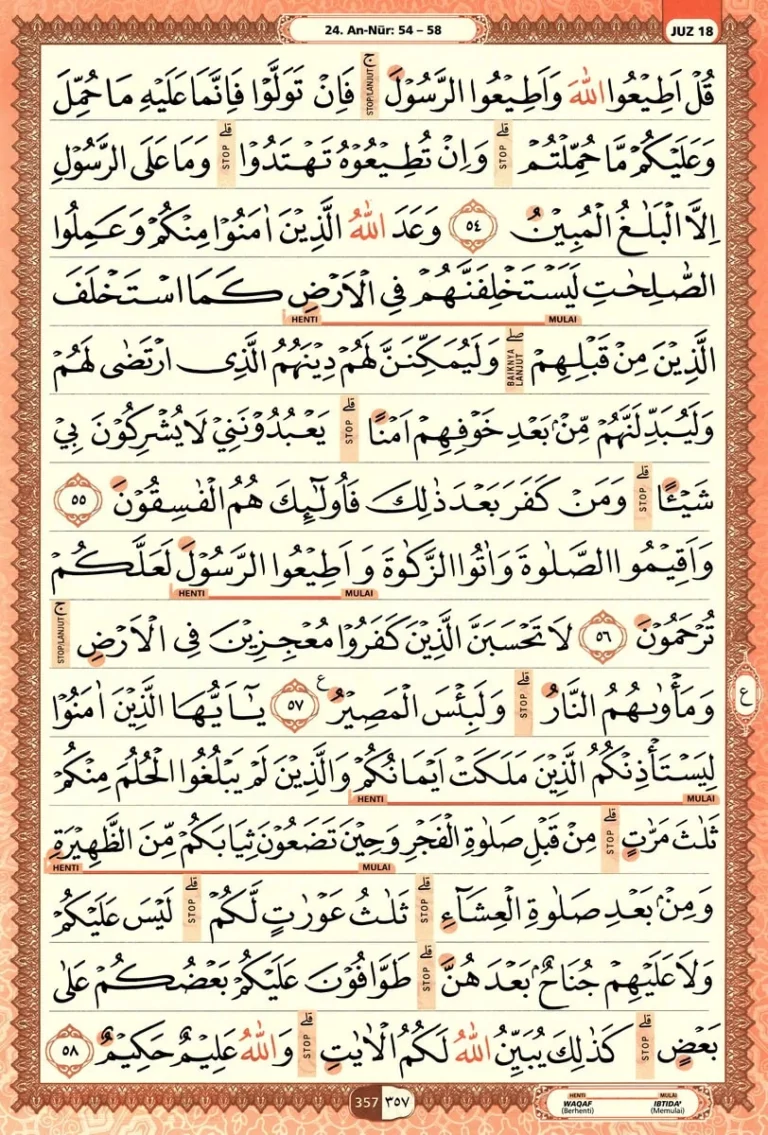 24. An-Nūr: 54 – 58
JUZ 18
قُلْ اَطِيْعُوا اللّٰهَ وَاَطِيْعُوا الرَّسُوْلَۚ STOP/LANJUT فَاِنْ تَوَلَّوْا فَاِنَّمَا عَلَيْهِ مَا حُمِّلَ
وَعَلَيْكُمْ مَّا حُمِّلْتُمْۗ STOP وَاِنْ تُطِيْعُوْهُ تَهْتَدُوْاۗ STOP وَمَا عَلَى الرَّسُوْلِ
اِلَّا الْبَلٰغُ الْمُبِيْنُ ٥٤ وَعَدَ اللّٰهُ الَّذِيْنَ اٰمَنُوْا مِنْكُمْ وَعَمِلُوا
الصّٰلِحٰتِ لَيَسْتَخْلِفَنَّهُمْ فِى الْاَرْضِ كَمَا اسْتَخْلَفَ
HENTI MULAI
الَّذِيْنَ مِنْ قَبْلِهِمْۖ BAIKNYA LANJUT وَلَيُمَكِّنَنَّ لَهُمْ دِيْنَهُمُ الَّذِى ارْتَضٰى لَهُمْ
وَلَيُبَدِّلَنَّهُمْ مِّنْۢ بَعْدِ خَوْفِهِمْ اَمْنًاۗ STOP يَعْبُدُوْنَنِيْ لَا يُشْرِكُوْنَ بِيْ
شَيْـًٔاۗ STOP وَمَنْ كَفَرَ بَعْدَ ذٰلِكَ فَاُولٰۤىِٕكَ هُمُ الْفٰسِقُوْنَ ٥٥
وَاَقِيْمُوا الصَّلٰوةَ وَاٰتُوا الزَّكٰوةَ وَاَطِيْعُوا الرَّسُوْلَ لَعَلَّكُمْ
HENTI MULAI
تُرْحَمُوْنَ ٥٦ لَا تَحْسَبَنَّ الَّذِيْنَ كَفَرُوْا مُعْجِزِيْنَ فِى الْاَرْضِۚ STOP/LANJUT
وَمَأْوٰىهُمُ النَّارُۗ STOP وَلَبِئْسَ الْمَصِيْرُ ࣖ ٥٧ يٰٓاَيُّهَا الَّذِيْنَ اٰمَنُوْا
ع
لِيَسْتَأْذِنْكُمُ الَّذِيْنَ مَلَكَتْ اَيْمَانُكُمْ وَالَّذِيْنَ لَمْ يَبْلُغُوا الْحُلُمَ مِنْكُمْ
HENTI MULAI
ثَلٰثَ مَرّٰتٍۗ STOP مِنْ قَبْلِ صَلٰوةِ الْفَجْرِ وَحِيْنَ تَضَعُوْنَ ثِيَابَكُمْ مِّنَ الظَّهِيْرَةِ
HENTI MULAI
وَمِنْۢ بَعْدِ صَلٰوةِ الْعِشَاۤءِۗ STOP ثَلٰثُ عَوْرٰتٍ لَّكُمْۗ STOP لَيْسَ عَلَيْكُمْ
وَلَا عَلَيْهِمْ جُنَاحٌۢ بَعْدَهُنَّۗ STOP طَوَّافُوْنَ عَلَيْكُمْ بَعْضُكُمْ عَلٰى
بَعْضٍۗ STOP كَذٰلِكَ يُبَيِّنُ اللّٰهُ لَكُمُ الْاٰيٰتِۗ STOP وَاللّٰهُ عَلِيْمٌ حَكِيْمٌ ٥٨
357 ٣٥٧
HENTI MULAI
WAQAF IBTIDA'
(Berhenti) (Memulai)